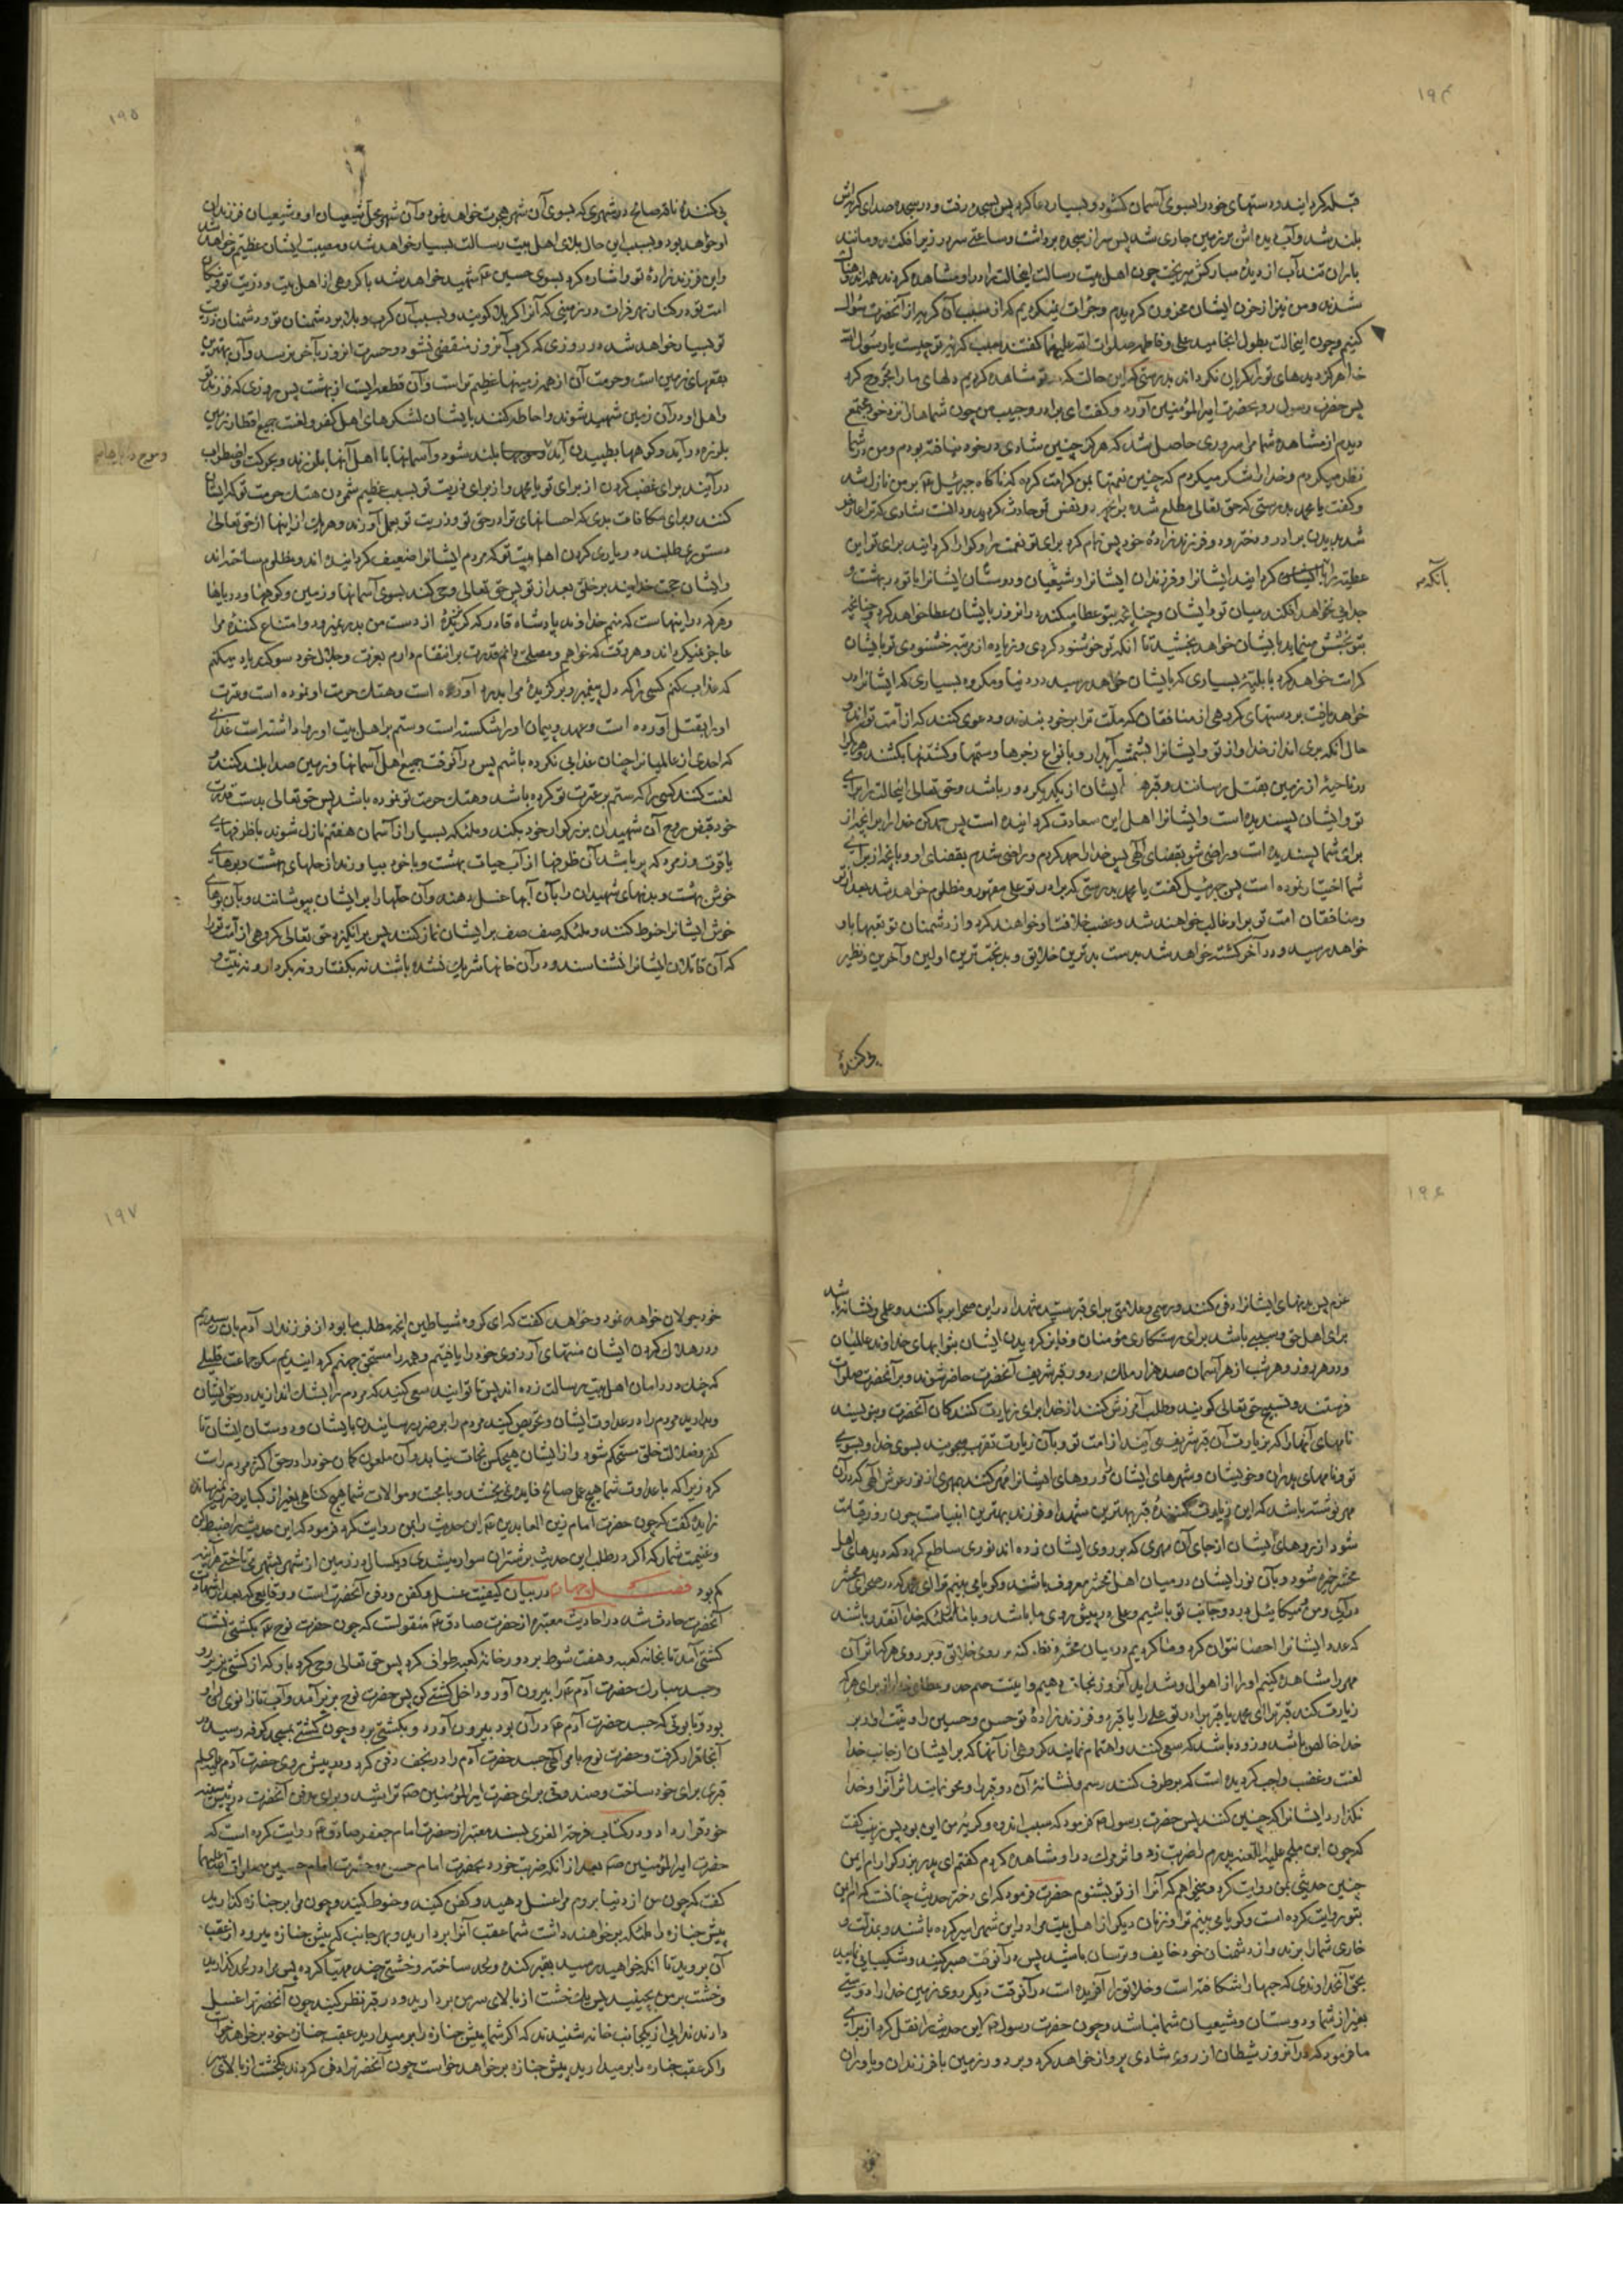 ۱۹۴
قبله کردانید و دستهای خود را بسوی آسمان کشود و بسیار دعا کرد پس بسجده رفت و در سجده صدای کریه‌اش
بلند شد و آب دیده اش بر زمین جاری شد پس سر از سجده برداشت و ساعتی سر در زیر افکند و مانند
باران تند آب از دیدهٔ مبارکش میریخت چون اهل بیت رسالت اینحالت را در او مشاهده کردند همه اندوهناک
شدند و من نیز از حزن ایشان محزون کردیدم و جرأت نمیکردیم که از سبب آن کریه از آنحضرت سؤال
کنیم و چون اینحالت بطول انجامید علی و فاطمه صلوات الله علیهما کفتند سبب کریهٔ تو چیست یا رسول الله
خدا هرکز دیدهای تو را کریان نکرداند بدرستی که این حالت که در تو مشاهده کردیم دلهای ما را مجروح کرد
پس حضرت رسول رو بحضرت امیرالمؤمنین آورد و کفت ای برادر و حبیب من چون شماها را نزد خود مجتمع
دیدم از مشاهدهٔ شما مرا سروری حاصل شد که هرکز چنین شادی در خود نیافته بودم و من در شما
نظر میکردم و خدا را شکر میکردم که چنین نعمتها بمن کرامت کرده که ناکاه جبرئیل ع بر من نازل شد
و کفت یا محمد بدرستی که حق تعالی مطلع شده بر آنچه در نفس تو حادث کردید و دانست شادی که ترا عارض
شد بدیدن برادر و دختر و دو فرزند زادهٔ خود پس تمام کرد برای تو نعمت را و کوارا کردانید برای تو این
عطیه را بآنکه کردانید ایشانرا و فرزندان ایشانرا و شیعیان و دوستان ایشانرا با تو در بهشت و
بآنکه
جدایی نخواهد افکند میان تو و ایشان و چنانچه بتو عطا میکند در آنروز بایشان عطا خواهد کرد و چنانچه
بتو بخشش مینماید بایشان خواهد بخشید تا آنکه تو خوشنود کردی و زیاده از مرتبهٔ خشنودی تو بایشان
کرامت خواهد کرد با بلیهٔ بسیاری که بایشان خواهد رسید در دنیا و مکروه بسیاری که ایشانرا در
خواهد یافت بر دستهای کروهی از منافقان که ملت ترا بر خود بندند و دعوی کنند که از امت تواند و
حال آنکه بری اند از خدا و از تو و ایشانرا بشمشیر آبدار و بانواع زجرها و ستمها و کشتنها بکشند و هریک را
در ناحیهٔ از زمین بقتل رسانند و قبرهای ایشان از یکدیکر دور باشد و حق تعالی اینحالت را برای
تو و ایشان پسندیده است و ایشانرا اهل این سعادت کردانیده است پس حمد کن خدا را بر آنچه از
برای شما پسندیده است و راضی شو بقضای الهی پس خدا را حمد کردم و راضی شدم بقضای او و بآنچه از برای
شما اختیار نموده است پس جبرئیل کفت یا محمد بدرستی که برادر تو علی مقهور و مظلوم خواهد شد بعد از تو
و منافقان امت تو بر او غالب خواهند شد و غصب خلافت او خواهند کرد و از دشمنان تو تعبها باو
خواهد رسید و در آخر کشته خواهد شد بدست بدترین خلایق و بدبخت ترین اولین و آخرین و نظیر
پی کنندهٔ
۱۹۵
پی کنندهٔ ناقهٔ صالح در شهری که بسوی آن شهر هجرت خواهد نمود و آن شهر محل شیعیان او و شیعیان فرزندان
او خواهد بود و بسبب این حال بلای اهل بیت رسالت بسیار خواهد شد و مصیبت ایشان عظیم تر خواهد شد
و این فرزند زادهٔ تو و اشاره کرد بسوی حسین ع شهید خواهد شد با کروهی از اهل بیت و ذریت تو و نیکان
امت تو در کنار نهر فرات در زمینی که آنرا کربلا کویند و بسبب آن کرب و بلا بر دشمنان تو و دشمنان ذریت
تو بسیار خواهد شد در روزی که کرب آنروز منقضی نشود و حسرت انروز بآخر نرسد و آن بهترین
بقعهای زمین است و حرمت آن از همه زمینها عظیم تر است و آن قطعه ایست از بهشت پس چون روزی که فرزند تو
و اهل او در آن زمین شهید شوند و احاطه کنند بایشان لشکرهای اهل کفر و لعنت جمیع اقطار زمین
بلرزه در آید و کوهها بطپیدن آید و موجها بلند شود و آسمانها با اهل آنها بلرزند و بحرکت و اضطراب
و موج دریاها
درآیند برای غضب کردن از برای تو یا محمد و از برای ذریت تو بسبب عظیم شمردن هتک حرمت تو که ایشان
کنند و برای مکافات بدی که احسانهای ترا در حق تو و ذریت تو بعمل آورند و هریک از اینها از حق تعالی
دستوری طلبند در یاری کردن اهل بیت تو که مردم ایشانرا ضعیف کردانیده اند و مظلوم ساخته اند
و ایشان حجت خدایند بر خلق بعد از تو پس حق تعالی وحی کند بسوی آسمانها و زمین و کوهها و دریاها
و هر که در اینهاست که منم خداوند پادشاه قادر که کریزندهٔ از دست من بدر نمیرود و امتناع کنندهٔ مرا
عاجز نمیکرداند و هر وقت که خواهم و مصلحت دانم قدرت بر انتقام دارم بعزت و جلال خود سوکند یاد میکنم
که عذاب کنم کسی را که دل پیغمبر و برکزیدهٔ مرا بدرد آورده است و هتک حرمت او نموده است و عترت
او را بقتل آورده است و عهد و پیمان او را شکسته است و ستم بر اهل بیت او روا داشته است عذابی
که احدی از عالمیانرا چنان عذابی نکرده باشم پس در آنوقت جمیع اهل آسمانها و زمین صدا بلند کنند و
لعنت کنند کسی را که ستم بر عترت تو کرده باشد و هتک حرمت تو نموده باشد پس حق تعالی بدست قدرت
خود قبض روح آن شهیدان بزرکوار خود بکند و ملئکه بسیار از آسمان هفتم نازل شوند با ظرفهای
یاقوت و زمرد که پر باشد آن ظرفها از آب حیات بهشت و با خود بیاورند از حلهای بهشت و بوهای
خوش بهشت و بدنهای شهیدان را بآن آبها غسل دهند و آن حلها را بر ایشان بپوشانند و بآن بوهای
خوش ایشانرا حنوط کنند و ملئکه صف صف بر ایشان نماز کنند پس برانکیزد حق تعالی کروهی از امت ترا
که آن قاتلان ایشانرا نشناسند و در آن خونها شریک نشده باشند نه بکفتار و نه بکردار و نه بنیت و
۱۹۶
عزم پس بدنهای ایشانرا دفن کنند و رسمی و علامتی برای قبر سید شهدا در این صحرا برپا کنند و علمی و نشانهٔ باشد
برای اهل حق و سببی باشد برای رستکاری مؤمنان و فایز کردیدن ایشان بثوابهای خداوند عالمیان
و در هر روز و هر شب از هر آسمان صد هزار ملک بر دور قبر شریف آنحضرت حاضر شوند و بر آنحضرت صلوات
فرستند و تسبیح حق تعالی کویند و طلب آمرزش کنند از خدا برای زیارت کنندکان آنحضرت و بنویسند
نامهای آنها را که بزیارت آن قبر شریف می آیند از امت تو و بآن زیارت تقرب میجویند بسوی خدا و بسوی
تو و نامهای پدران و خویشان و شهرهای ایشان و روهای ایشانرا مهر کنند بمهری از نور عرش الهی که در آن
مهر نوشته باشد که این زیارت کنندهٔ قبر بهترین شهدا و فرزند بهترین انبیاست چون روز قیامت
شود از روهای ایشان از جای آن مهری که بر روی ایشان زده اند نوری ساطع کردد که دیدهای اهل
محشر خیره شود و بآن نور ایشان در میان اهل محشر معروف باشند و کویا می بینم ترا ای محمد که در صحرای محشر
درآیی و من و میکائیل در دو جانب تو باشیم و علی در پیش روی ما باشد و با ما از ملئکهٔ خدا آنقدر باشند
که عدد ایشانرا احصا نتوان کرد و ما کردیم در میان محشر و نظر کنیم بر روی خلایق و بر روی هر که اثر آن
مهر را مشاهده کنیم او را از اهوال و شداید آنروز نجات دهیم و اینست حکم خدا و عطای خدا از برای هر که
زیارت کند قبر ترا ای محمد یا قبر برادر تو علی را یا قبر دو فرزند زادهٔ تو حسن و حسین را و نیت او از برای
خدا خالص باشد و زود باشد که سعی کنند و اهتمام نمایند کروهی از آنها که بر ایشان از جانب خدا
لعنت و غضب واجب کردیده است که برطرف کنند رسم و نشانهٔ آن دو قبر را و محو نمایند اثر آنرا و خدا
نکذارد ایشانرا که چنین کنند پس حضرت رسول ص فرمود که سبب اندوه و کریهٔ من این بود پس زینب کفت
که چون ابن ملجم علیه اللعنه پدرم را ضربت زد و اثر مرک در او مشاهده کردم کفتم ای پدر بزرکوار ام ایمن
چنین حدیثی بمن روایت کرد و میخواهم که آنرا از تو بشنوم حضرت فرمود که ای دختر حدیث چنانست که ام ایمن
بتو روایت کرده است و کویا می بینم ترا و زنان دیکر از اهل بیت مرا در این شهر اسیر کرده باشند و بمذلت و
خاری شما را برند و از دشمنان خود خایف و ترسان باشید پس در آنوقت صبر کنید و شکیبایی نمایید
بحق آنخداوندی که حبها را شکافته است و خلایق را آفریده است در آنوقت دیکر روی زمین خدا را دوستی
بغیر از شما و دوستان و شیعیان شما نباشد و چون حضرت رسول ص این حدیث را نقل کرد از برای
ما فرمود که در آنروز شیطان از روی شادی پرواز خواهد کرد و بر دور زمین با فرزندان و یاوران
خود
۱۹۷
خود جولان خواهد نمود و خواهد کفت که ای کروه شیاطین آنچه مطلب ما بود از فرزندان آدم بآن رسیدیم
و در هلاک کردن ایشان منتهای آرزوی خود را یافتیم و همه را مستحق جهنم کردانیدیم مکر جماعت قلیلی
که چنک در دامان اهل بیت رسالت زده اند پس تا توانید سعی کنید که مردم را بشک اندازید در حق ایشان
و بدارید مردم را در عداوت ایشان و تحریص کنید مردم را بر ضرر رسانیدن بایشان و دوستان ایشان تا
کفر و ضلالت خلق مستحکم شود و از ایشان هیچکس نجات نیابد و آن ملعون کمان خود را در حق اکثر مردم راست
کرد زیرا که با عداوت شما هیچ عمل صالح فایده نمی بخشد و با محبت و موالات شما هیچ کناهی بغیر از کبایر ضرر نمیرساند
زایده کفت که چون حضرت امام زین العابدین ع این حدیث را بمن روایت کرد فرمود که این حدیث را ضبط کن
و غنیمت شمار که اکر در طلب این حدیث بر شتران سوار میشدی و یکسال در زمین از شهری بشهری میتاختی هر آینه
کم بود فصل چهارم در بیان کیفیت غسل و کفن و دفن آنحضرت است و وقایعی که بعد از شهادت
آنحضرت حادث شد در احادیث معتبره از حضرت صادق ع منقولست که چون حضرت نوح ع بکشتی نشست
کشتی آمد تا بخانه کعبه و هفت شوط بر دور خانه کعبه طواف کرد پس حق تعالی وحی کرد باو که از کشتی بزیر رود
و جسد مبارک حضرت آدم ع را بیرون آورد و داخل کشتی کن پس حضرت نوح بزیر آمد و آب تا زانوی او
بود و تابوتی که جسد حضرت آدم ع در آن بود بیرون آورد و بکشتی برد و چون کشتی بمسجد کوفه رسید در
آنجا قرار کرفت و حضرت نوح بامر الهی جسد حضرت آدم را در نجف دفن کرد و در پیش روی حضرت آدم علیه السلم
قبری برای خود ساخت و صندوقی برای حضرت امیرالمؤمنین ص تراشید و برای دفن آنحضرت در پیش سینه
خود قرار داد و در کتاب فرحة الغری بسند معتبر از حضرت امام جعفر صادق ع روایت کرده است که
حضرت امیرالمؤمنین ص بعد از آنکه ضربت خورد بحضرت امام حسن و حضرت امام حسین صلوات الله علیهما
کفت که چون من از دنیا بروم مرا غسل دهید و کفن کنید و حنوط کنید و چون مرا بر جنازه کذارید
پیش جنازه را ملئکه برخواهند داشت شما عقب آنرا بردارید و بهر جانب که پیش جنازه میرود از عقب
آن بروید تا آنکه خواهید رسید بقبر کنده و لحد ساخته و خشتی چند مهیا کرده پس مرا در لحد کذارید
و خشت بر من بچینید پس یک خشت از بالای سر من بردارید و در قبر نظر کنید چون آنحضرت را غسل
دادند ندایی از یکجانب خانه شنیدند که اکر شما پیش جنازه را برمیدارید عقب جنازه خود برخواهد خواست
و اکر عقب جنازه را برمیدارید پیش جنازه برخواهد خواست چون آنحضرت را دفن کردند یکخشت از بالای سر